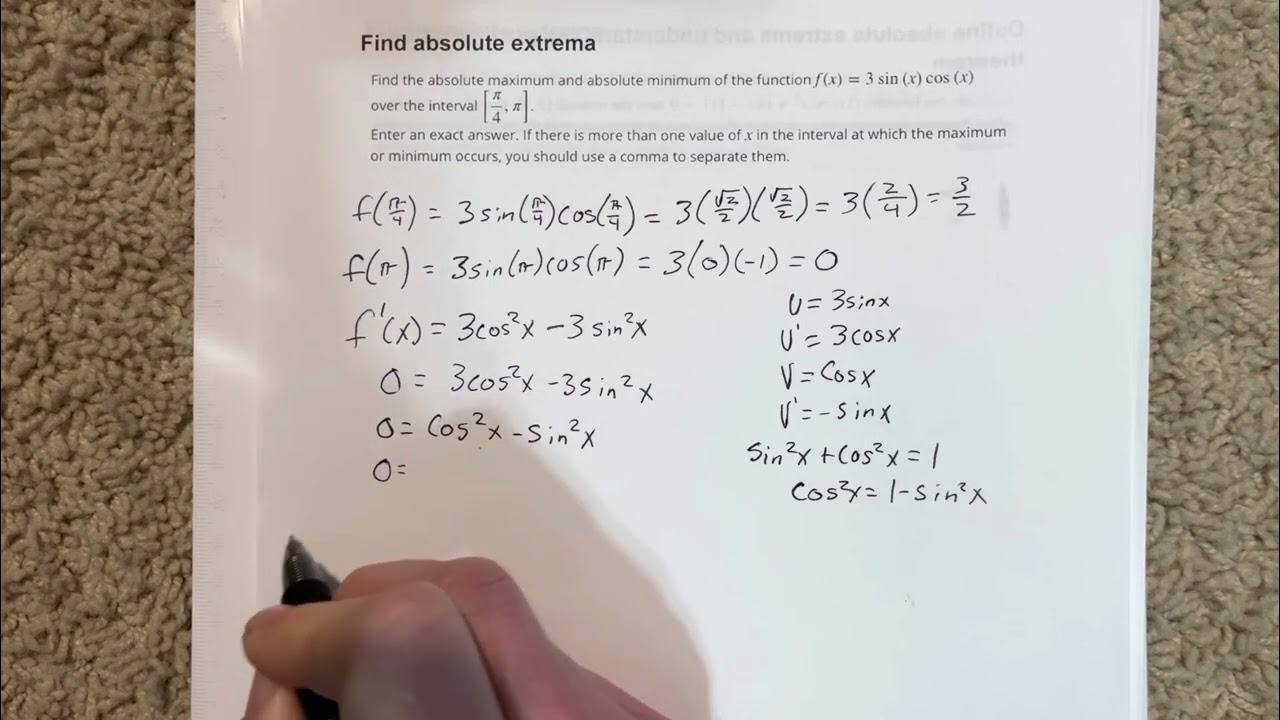 Find absolute extrema
Find the absolute maximum and absolute minimum of the function f(x) = 3 sin (x) cos (x)
over the interval [π/4, π].
Enter an exact answer. If there is more than one value of x in the interval at which the maximum
or minimum occurs, you should use a comma to separate them.
f(π/4) = 3sin(π/4)cos(π/4) = 3(√2/2)(√2/2) = 3(2/4) = 3/2
f(π) = 3sin(π)cos(π) = 3(0)(-1) = 0
f'(x) = 3cos²x - 3sin²x
0 = 3cos²x - 3sin²x
0 = cos²x - sin²x
0 =
U = 3sinx
U' = 3cosx
V = Cosx
V' = -sinx
Sin²x + Cos²x = 1
Cos²x = 1 - sin²x